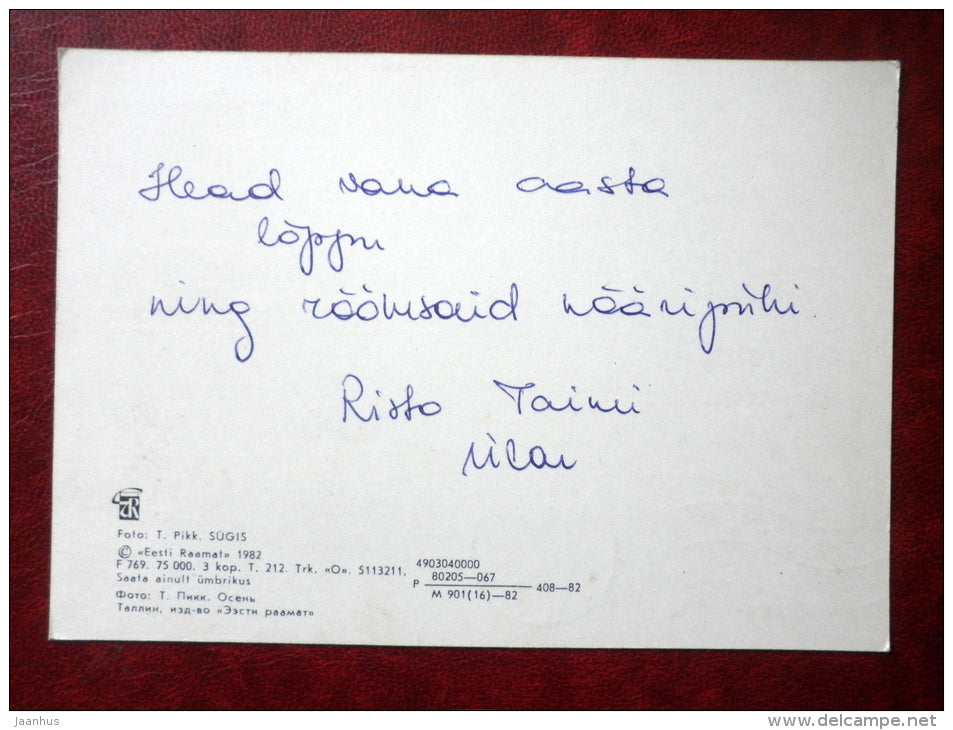 Head vana aasta
lõppu
ning rõõmsaid nääripühi.
Risto Taimi
Ülar
ER
Foto: T. Pikk. SÜGIS
© «Eesti Raamat» 1982
F 769. 75 000. 3 kop. T. 212. Trk. «O». 5113211.
Saata ainult ümbrikus
Фото: Т. Пикк. Осень
Таллин, изд-во «Ээсти раамат»
4903040000
Р 80205—067 408—82
М 901(16)—82
jaanhus
www.delcampe.net